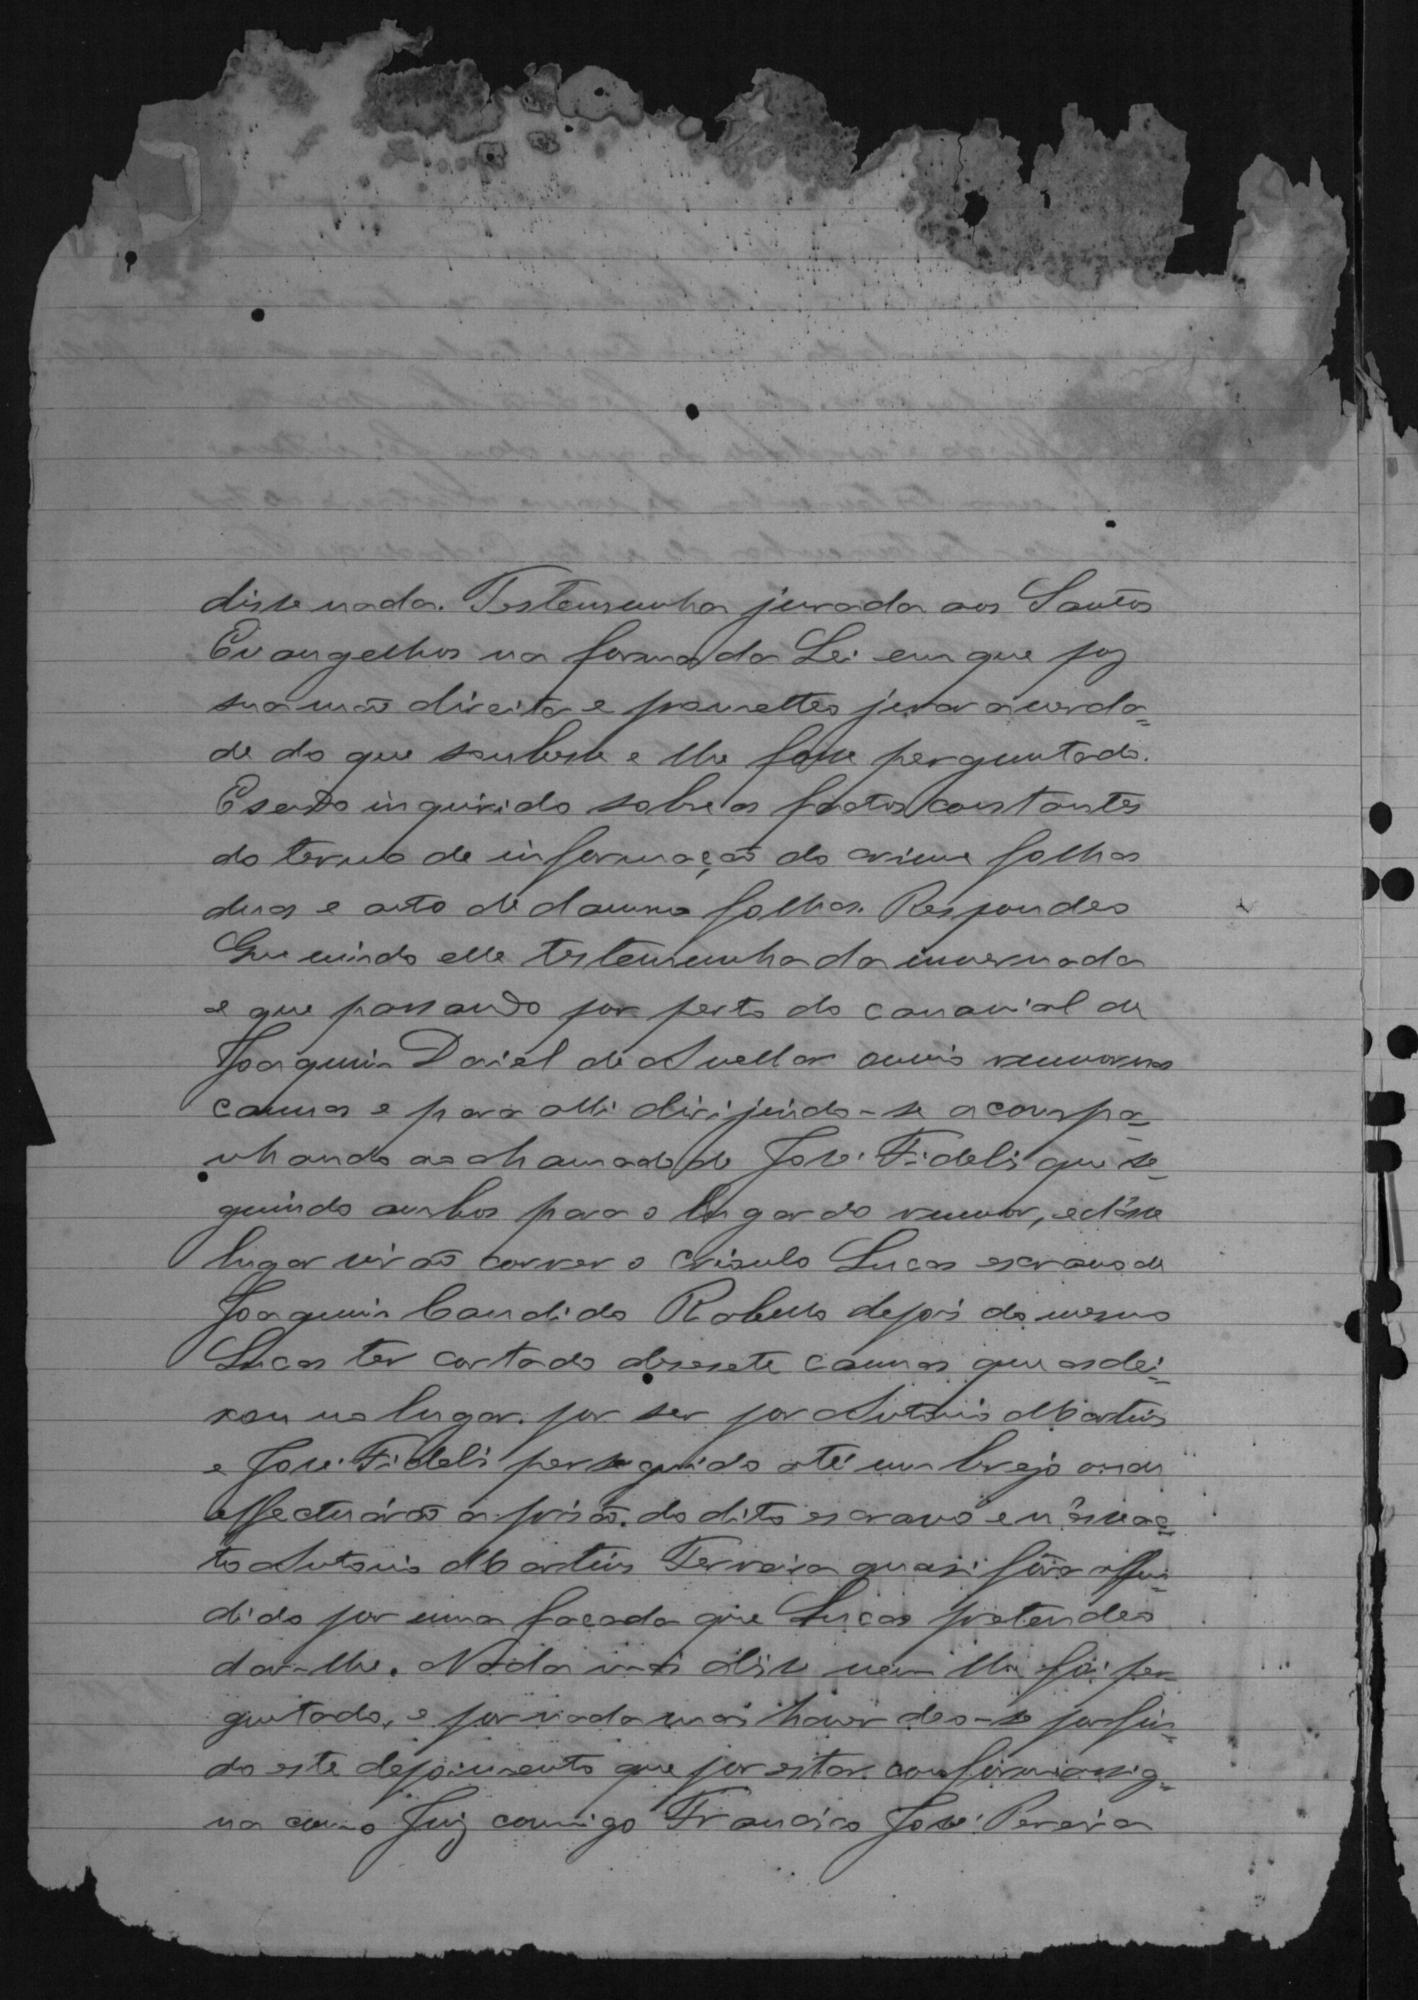 disse nada. Testemunha jurada aos Santos
Evangelhos na forma da Lei em que poz
sua mão direita e prometteo jurar a verda=
de do que soubesse e lhe fosse perguntado.
E sendo inquirido sobre os factos constantes
do termo de informação do crime folhas
duas e auto de damno folhas. Respondeo
Que vindo elle testemunha da invernada
e que passando por perto do canavial de
Joaquim Daniel de Avellar ouvio rumor nas
cannas e para alli dirijindo-se acompa=
nhando ao chamado de José Fideli que se=
guindo ambos para o lugar do rumor, e d'esse
lugar virão correr o crioulo Lucas escravo de
Joaquim Candido Rabello depois do mesmo
Lucas ter cortado desesete cannas que as dei=
xou no lugar. por ser por Antonio Martins
e José Fideli perseguido até um brejo onde
effectuárão a prisão. do dito escravo e n'esse ac=
to Antonio Martins Ferreira quasi fôra offen=
dido por uma facada que Lucas pretendeo
dar-lhe. Nada mais disse nem lhe foi per=
guntado, e por nada mais haver deo-se por fin=
do este depoimento que por estar conforme assig=
na com o Juiz comigo Francisco José Pereira